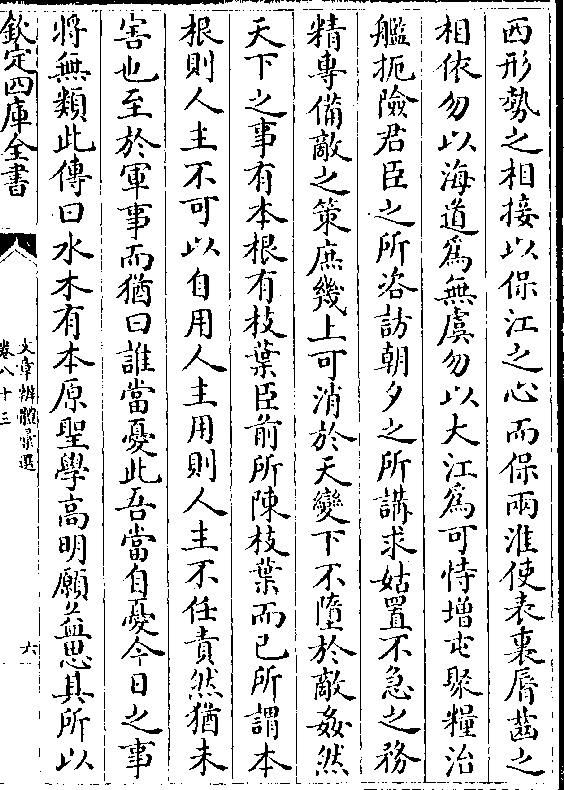 西形勢之相接以保江之心而保兩淮使表裏脣齒之
相依勿以海道爲無虞勿以大江爲可恃增屯聚糧治
艦扼險君臣之所咨訪朝夕之所講求姑置不急之務
精專備敵之策庶幾上可消於天變下不墮於敵姦然
天下之事有本根有枝葉臣前所陳枝葉而已所謂本
根則人主不可以自用人主用則人主不任責然猶未
害也至於軍事而猶曰誰當憂此吾當自憂今日之事
將無類此傳曰水木有本原聖學高明願益思其所以
欽定四庫全書
文章辨體彙選
卷八十三
六